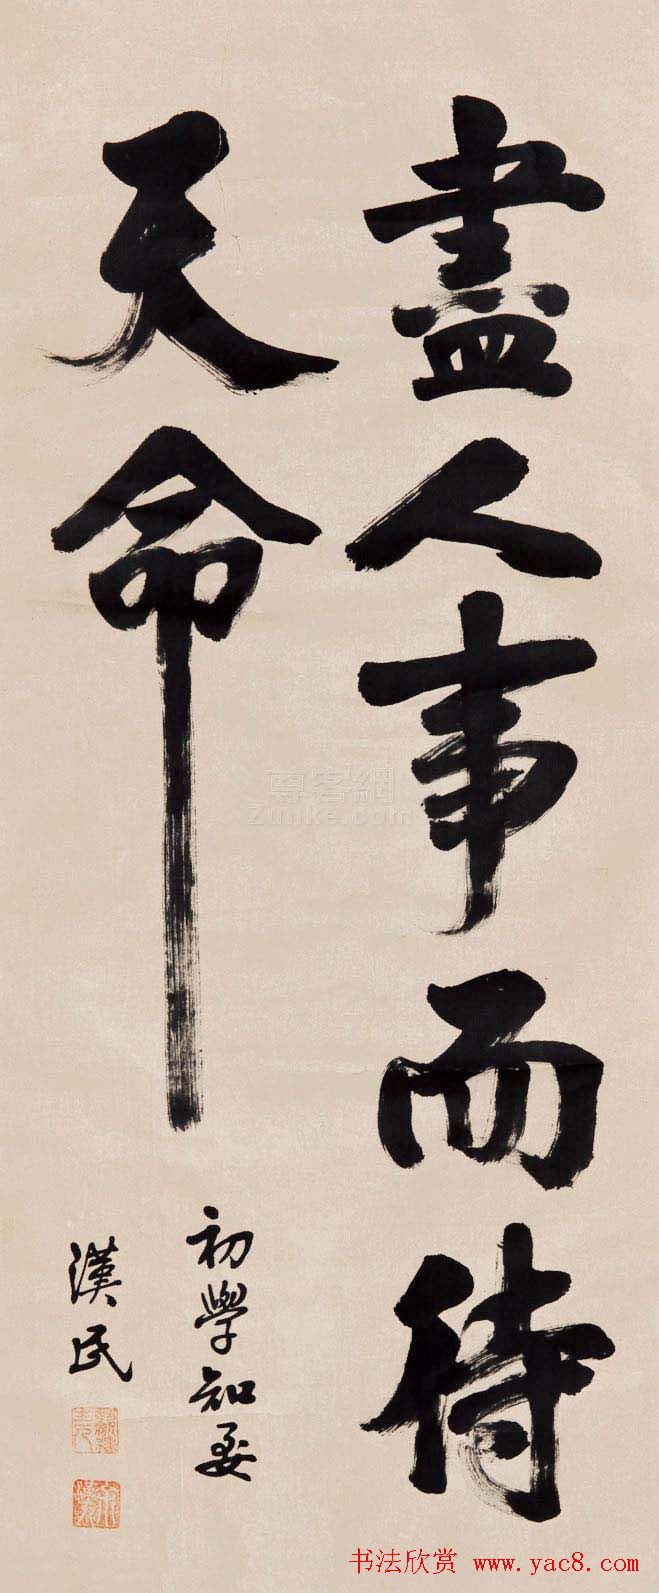 盡人事而待
天命
初學知要
漢民
尊客網
Zunke.com
书法欣赏 www.yac8.com